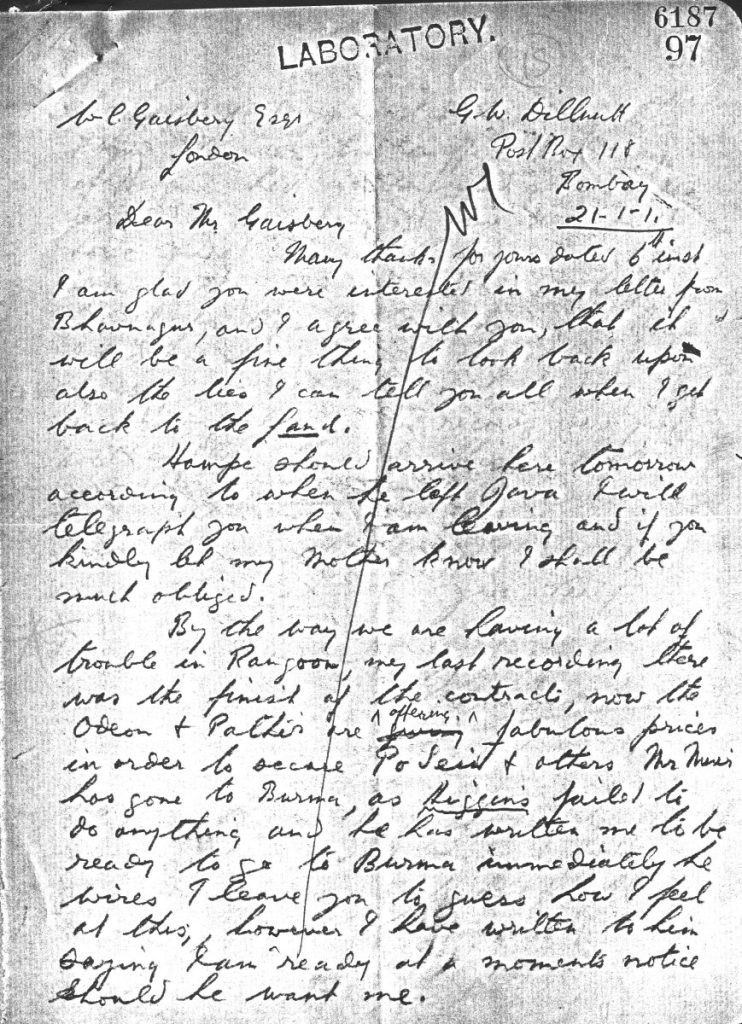 6187
97
LABORATORY.
15
W C Gaisberg Esqr
London
G. W. Dillnutt
Post Box 118
Bombay
21-1-1
Dear Mr Gaisberg
Many thanks for yours dated 6th inst
I am glad you were interested in my letter from
Bhavnagur, and I agree with you, that it
will be a fine thing to look back upon
also the lies I can tell you all when I get
back to the land.
Hampe should arrive here tomorrow
according to when he left Java I will
telegraph you when I am leaving and if you
kindly let my Mother know I shall be
much obliged.
By the way we are having a lot of
trouble in Rangoon, my last recording there
was the finish of the contracts, now the
Odeon & Pathis are offering fabulous prices
in order to secure Po Sein & others Mr Muir
has gone to Burma, as Higgins failed to
do anything and he has written me to be
ready to go to Burma immediately he
wires I leave you to guess how I feel
at this, however I have written to him
saying I am ready at a moments notice
should he want me.